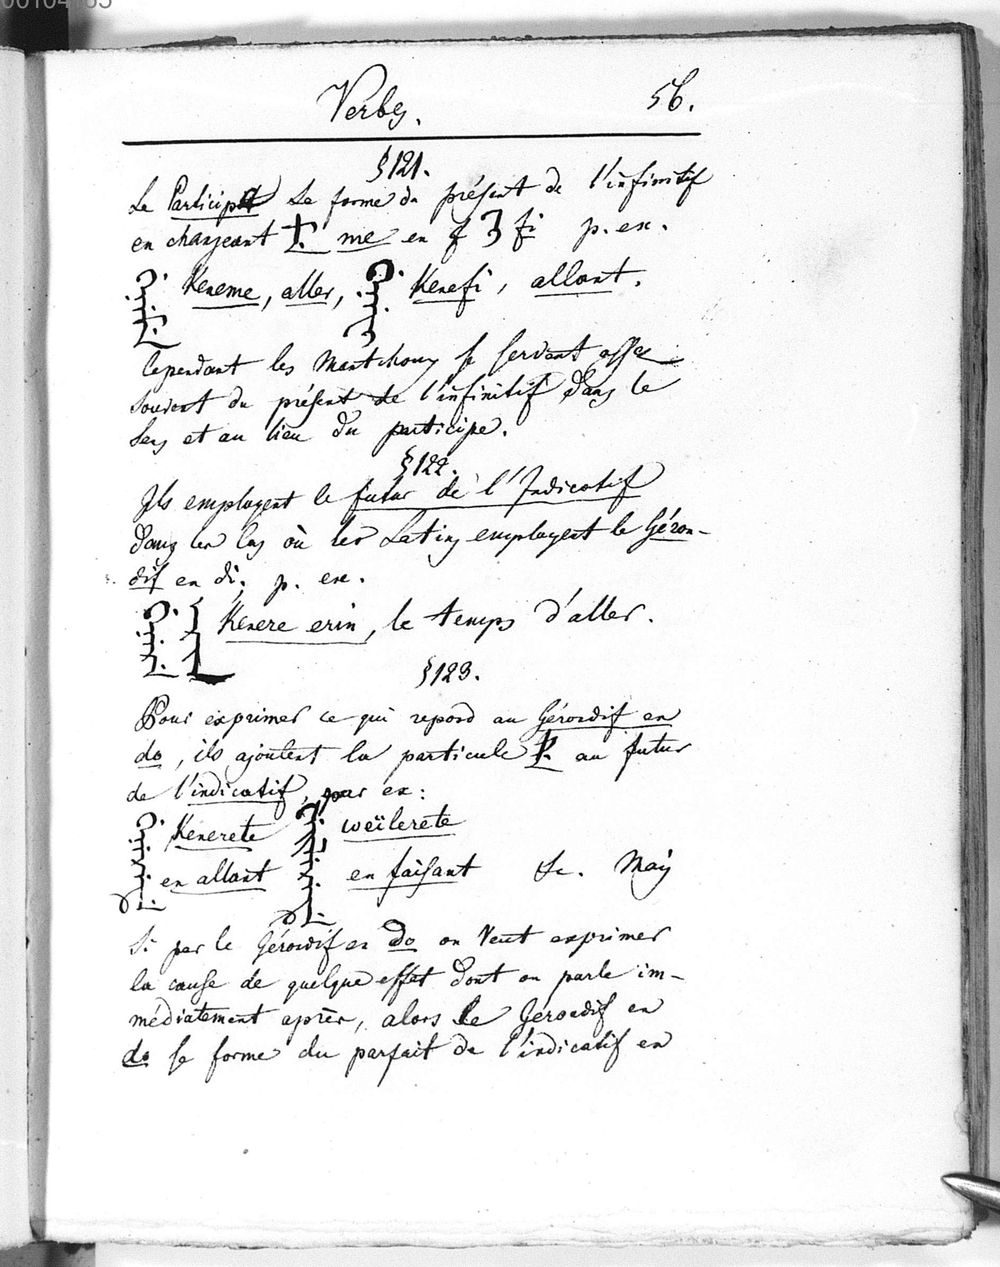 Verbes. 56.
§ 121.
Le Participe se forme du présent de l'infinitif
en changeant me en fi p. ex.
Keneme, aller, Kenefi, allant.
Cependant les Mantchoux se servent assez
souvent du présent de l'infinitif dans le
sens et au lieu du participe.
§ 122.
Ils employent le futur de l'Indicatif
dans les cas où les Latins employent le Géron-
dif en di. p. ex.
Kenere erin, le temps d'aller.
§ 123.
Pour exprimer ce qui repond au Gérondif en
do, ils ajoutent la particule au futur
de l'indicatif, par ex:
Kenerete weïlerete
en allant en faisant &c. Mais
Si par le Gérondif en Do on veut exprimer
la cause de quelque effet dont on parle im-
médiatement après, alors le Gérondif en
do se forme du parfait de l'indicatif en